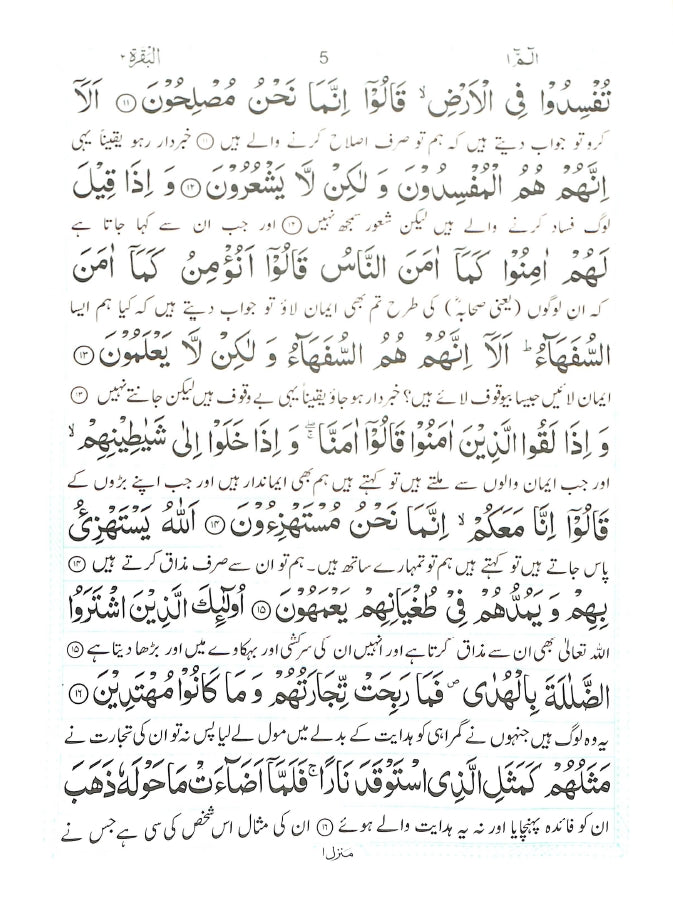 الٓمّٓ ۱ 5 البقرۃ ۲
تُفْسِدُوْا فِی الْاَرْضِ ۙ قَالُوْۤا اِنَّمَا نَحْنُ مُصْلِحُوْنَ ﴿۱۱﴾ اَلَاۤ
کرو تو جواب دیتے ہیں کہ ہم تو صرف اصلاح کرنے والے ہیں ﴿۱۱﴾ خبردار رہو یقیناً یہی
اِنَّهُمْ هُمُ الْمُفْسِدُوْنَ وَ لٰكِنْ لَّا یَشْعُرُوْنَ ﴿۱۲﴾ وَ اِذَا قِیْلَ
لوگ فساد کرنے والے ہیں لیکن شعور سمجھ نہیں ﴿۱۲﴾ اور جب ان سے کہا جاتا ہے
لَهُمْ اٰمِنُوْا كَمَاۤ اٰمَنَ النَّاسُ قَالُوْۤا اَنُؤْمِنُ كَمَاۤ اٰمَنَ
کہ ان لوگوں (یعنی صحابہؓ) کی طرح تم بھی ایمان لاؤ تو جواب دیتے ہیں کہ کیا ہم ایسا
السُّفَهَآءُ ؕ اَلَاۤ اِنَّهُمْ هُمُ السُّفَهَآءُ وَ لٰكِنْ لَّا یَعْلَمُوْنَ ﴿۱۳﴾
ایمان لائیں جیسا بیوقوف لائے ہیں؟ خبردار ہو جاؤ یقیناً یہی بے وقوف ہیں لیکن جانتے نہیں ﴿۱۳﴾
وَ اِذَا لَقُوا الَّذِیْنَ اٰمَنُوْا قَالُوْۤا اٰمَنَّا ۚۖ وَ اِذَا خَلَوْا اِلٰی شَیٰطِیْنِهِمْ ۙ
اور جب ایمان والوں سے ملتے ہیں تو کہتے ہیں ہم بھی ایماندار ہیں اور جب اپنے بڑوں کے
قَالُوْۤا اِنَّا مَعَكُمْ ۙ اِنَّمَا نَحْنُ مُسْتَهْزِءُوْنَ ﴿۱۴﴾ اَللّٰهُ یَسْتَهْزِئُ
پاس جاتے ہیں تو کہتے ہیں ہم تو تمہارے ساتھ ہیں۔ ہم تو ان سے صرف مذاق کرتے ہیں ﴿۱۴﴾
بِهِمْ وَ یَمُدُّهُمْ فِیْ طُغْیَانِهِمْ یَعْمَهُوْنَ ﴿۱۵﴾ اُولٰٓئِكَ الَّذِیْنَ اشْتَرَوُا
اللہ تعالیٰ بھی ان سے مذاق کرتا ہے اور انہیں ان کی سرکشی اور بہکاوے میں اور بڑھا دیتا ہے ﴿۱۵﴾
الضَّلٰلَةَ بِالْهُدٰی ۪ فَمَا رَبِحَتْ تِّجَارَتُهُمْ وَ مَا كَانُوْا مُهْتَدِیْنَ ﴿۱۶﴾
یہ وہ لوگ ہیں جنہوں نے گمراہی کو ہدایت کے بدلے میں مول لے لیا پس نہ تو ان کی تجارت نے
مَثَلُهُمْ كَمَثَلِ الَّذِی اسْتَوْقَدَ نَارًا ۚ فَلَمَّاۤ اَضَآءَتْ مَا حَوْلَهٗ ذَهَبَ
ان کو فائدہ پہنچایا اور نہ یہ ہدایت والے ہوئے ﴿۱۶﴾ ان کی مثال اس شخص کی سی ہے جس نے
منزل ۱